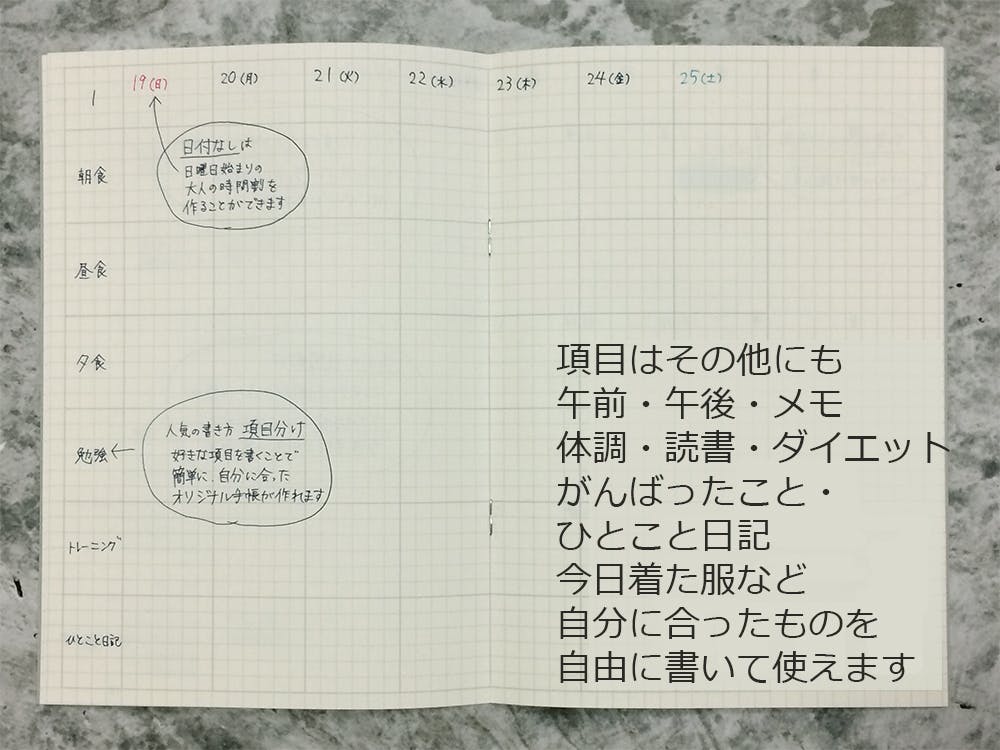 1 19(日) 20(月) 21(火) 22(水) 23(木) 24(金) 25(土)
日付なしは
日曜日始まりの
大人の時間割を
作ることができます
朝食
昼食
夕食
人気の書き方 項目分け
好きな項目を書くことで
簡単に、自分に合った
オリジナル手帳が作れます
勉強
トレーニング
ひとこと日記
項目はその他にも
午前・午後・メモ
体調・読書・ダイエット
がんばったこと・
ひとこと日記
今日着た服など
自分に合ったものを
自由に書いて使えます